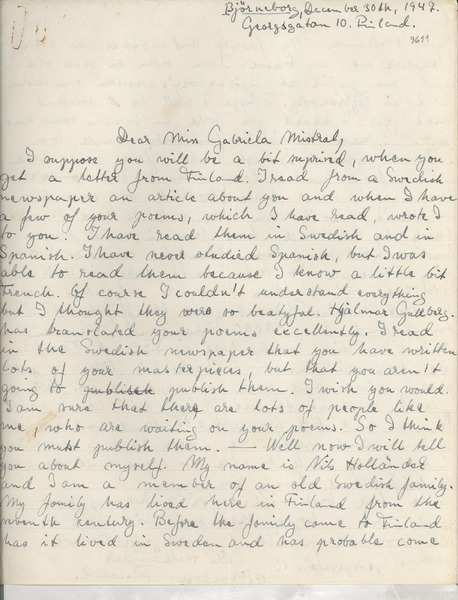 Björneborg, December 30th, 1947.
Georgsgatan 10. Finland.
3611
Dear Miss Gabriela Mistral,
I suppose you will be a bit suprised, when you
get a letter from Finland. I read from a Swedish
newspaper an article about you and when I have
a few of your poems, which I have read, wrote I
to you. I have read them in Swedish and in
Spanish. I have never studied Spanish, but I was
able to read them because I know a little bit
French. Of course I couldn't understand everything
but I thought they were so beatyful. Hjalmar Gullberg
has translated your poems excellently. I read
in the Swedish newspaper that you have written
lots of your masterpieces, but that you aren't
going to publish publish them. I wish you would.
I am sure that there are lots of people like
me, who are waiting on your poems. So I think
you must publish them. — Well now I will tell
you about myself. My name is Nils Holländer
and I am a member of an old Swedish family.
My family has lived here in Finland from the
century. Before the family come to Finland
has it lived in Sweden and has probable come